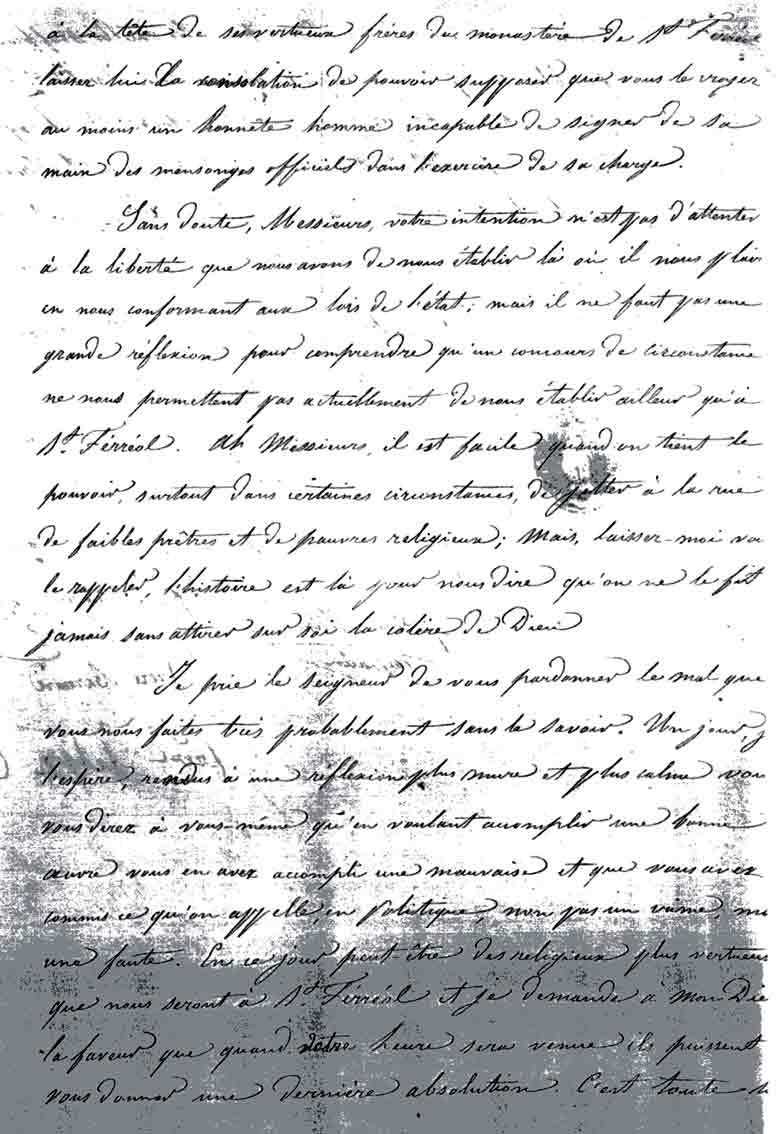 à la tête de ses vertueux frères du monastère de St Ferréol
laisser lui la consolation de pouvoir supposer que vous le croyez
au moins un honnête homme incapable de signer de sa
main des mensonges officiels dans l'exercice de sa charge.
Sans doute, Messieurs, votre intention n'est pas d'attenter
à la liberté que nous avons de nous établir là où il nous plait
en nous conformant aux lois de l'état; mais il ne faut pas une
grande réflexion pour comprendre qu'un concours de circonstance
ne nous permettent pas actuellement de nous établir ailleur qu'à
St Férréol. Ah Messieurs, il est facile quand on tient le
pouvoir, surtout dans certaines circonstances, de jetter à la rue
de faibles prêtres et de pauvres religieux; Mais, laisser-moi vo
le rappeler, l'histoire est là pour nous dire qu'on ne le fit
jamais sans attirer sur soi la colère de Dieu
Je prie le seigneur de vous pardonner le mal que
vous nous faites très probablement sans le savoir. Un jour, j
l'espère, rendus à une réflexion plus mure et plus calme vou
vous direz à vous-même qu'en voulant accomplir une bonne
œuvre vous en avez accompli une mauvaise et que vous avez
commis ce qu'on appelle, en Politique, non pas un crime, ma
une faute. En ce jour peut-être des religieux plus vertueux
que nous seront à St Férréol et je demande à mon Die
la faveur que quand votre heure sera venue ils puissent
vous donner une dernière absolution. C'est toute